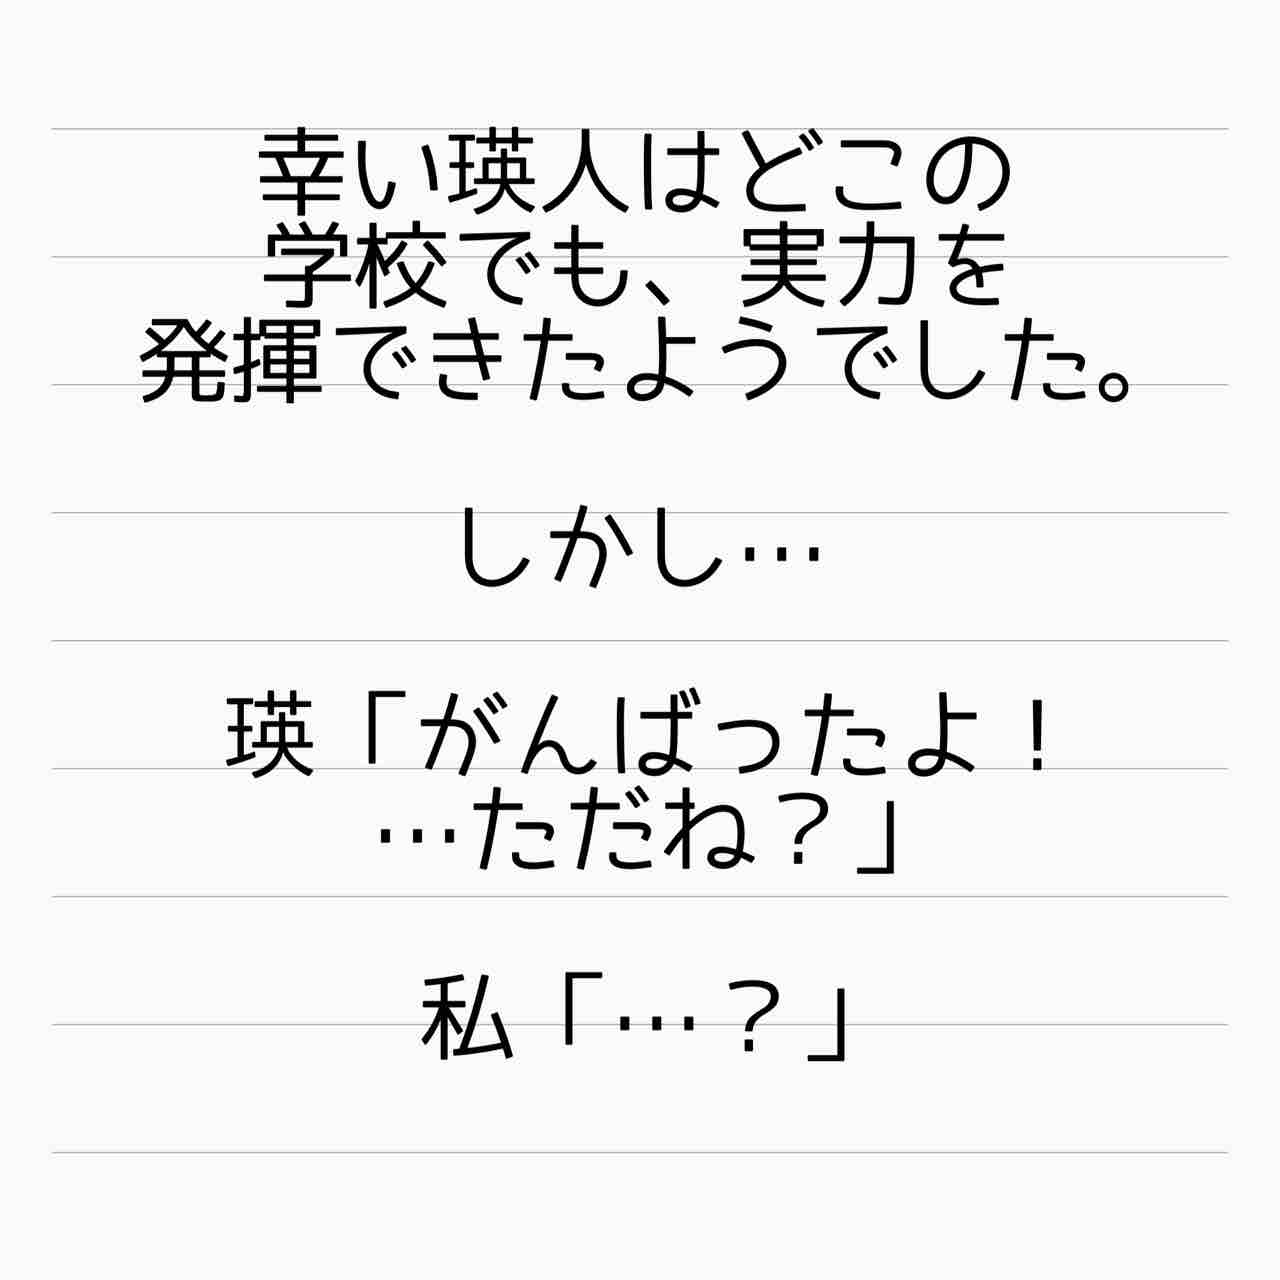 幸い瑛人はどこの
学校でも、実力を
発揮できたようでした。
しかし…
瑛「がんばったよ！
…ただね？」
私「…？」